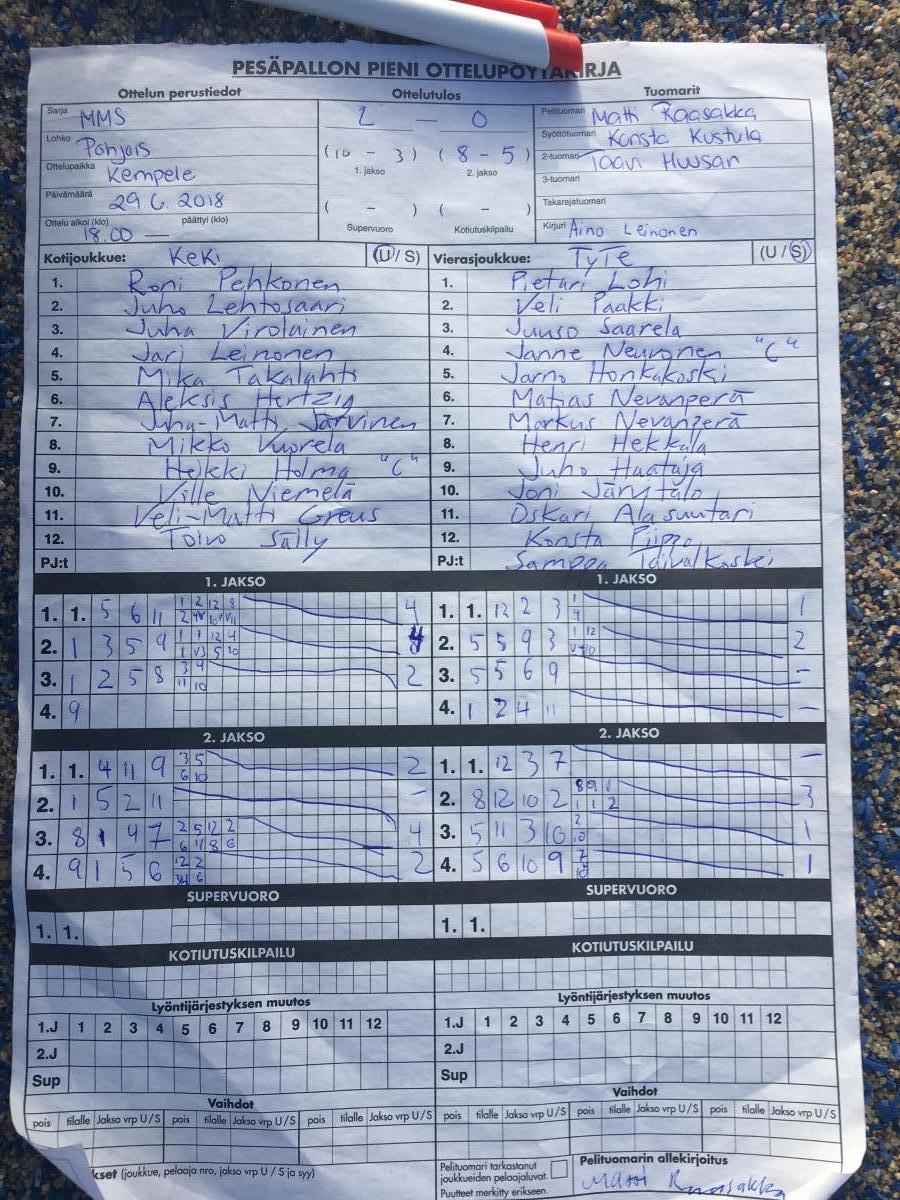 PESÄPALLON PIENI OTTELUPÖYTÄKIRJA
Ottelun perustiedot Ottelutulos Tuomarit
Sarja MMS
Lohko Pohjois
Ottelupaikka Kempele
Päivämäärä 29.6.2018
Ottelu alkoi (klo) päättyi (klo)
18.00 —
2 — 0
(10 - 3) (8 - 5)
1. jakso 2. jakso
( - ) ( - )
Supervuoro Kotiutuskilpailu
Pelituomari Matti Raasakka
Syöttötuomari Konsta Kustula
2-tuomari
3-tuomari
Takarajatuomari
Kirjuri Aino Leinonen
Kotijoukkue: KeKi (U / S)
1. Roni Pehkonen
2. Juho Lehtosaari
3. Juha Virolainen
4. Jari Leinonen
5. Mika Takalahti
6. Aleksis Hertzig
7. Juha-Matti Järvinen
8. Mikko Vuorela
9. Heikki Holma "C"
10. Ville Niemelä
11. Veli-Matti Greus
12. Toivo Sälly
PJ:t
Vierasjoukkue: TyTe (U / S)
1. Pietari Lohi
2. Veli Paakki
3. Juuso Saarela
4. Janne Neuvonen "C"
5. Jarno Honkakoski
6. Matias Nevanperä
7. Markus Nevanperä
8. Henri Hekkala
9. Juho Haataja
10. Joni Järvitalo
11. Oskari Alasuutari
12. Konsta Piippo
PJ:t Samppa Taivalkoski
1. JAKSO
1. 1. 5 6 11 4
2. 1 3 5 9
3. 1 2 5 8 2
4. 9
1. JAKSO
1. 1. 12 2 3 1
2. 5 5 9 3 2
3. 5 5 6 9 –
4. 1 2 4 11 –
2. JAKSO
1. 1. 4 11 9 2
2. 1 5 2 11 –
3. 8 1 4 7 4
4. 9 1 5 6 2
2. JAKSO
1. 1. 12 3 7 –
2. 8 12 10 2 3
3. 5 11 3 10 1
4. 5 6 10 9 1
SUPERVUORO SUPERVUORO
1. 1. 1. 1.
KOTIUTUSKILPAILU KOTIUTUSKILPAILU
Lyöntijärjestyksen muutos Lyöntijärjestyksen muutos
1.J 1 2 3 4 5 6 7 8 9 10 11 12 1.J 1 2 3 4 5 6 7 8 9 10 11 12
2.J 2.J
Sup Sup
Vaihdot Vaihdot
pois tilalle Jakso vrp U / S pois tilalle Jakso vrp U / S pois tilalle Jakso vrp U / S pois tilalle Jakso vrp U / S
kset (joukkue, pelaaja nro, jakso vrp U / S ja syy)
Pelituomari tarkastanut
joukkueiden pelaajaluvat.
Puutteet merkitty erikseen.
Pelituomarin allekirjoitus
Matti Raasakka